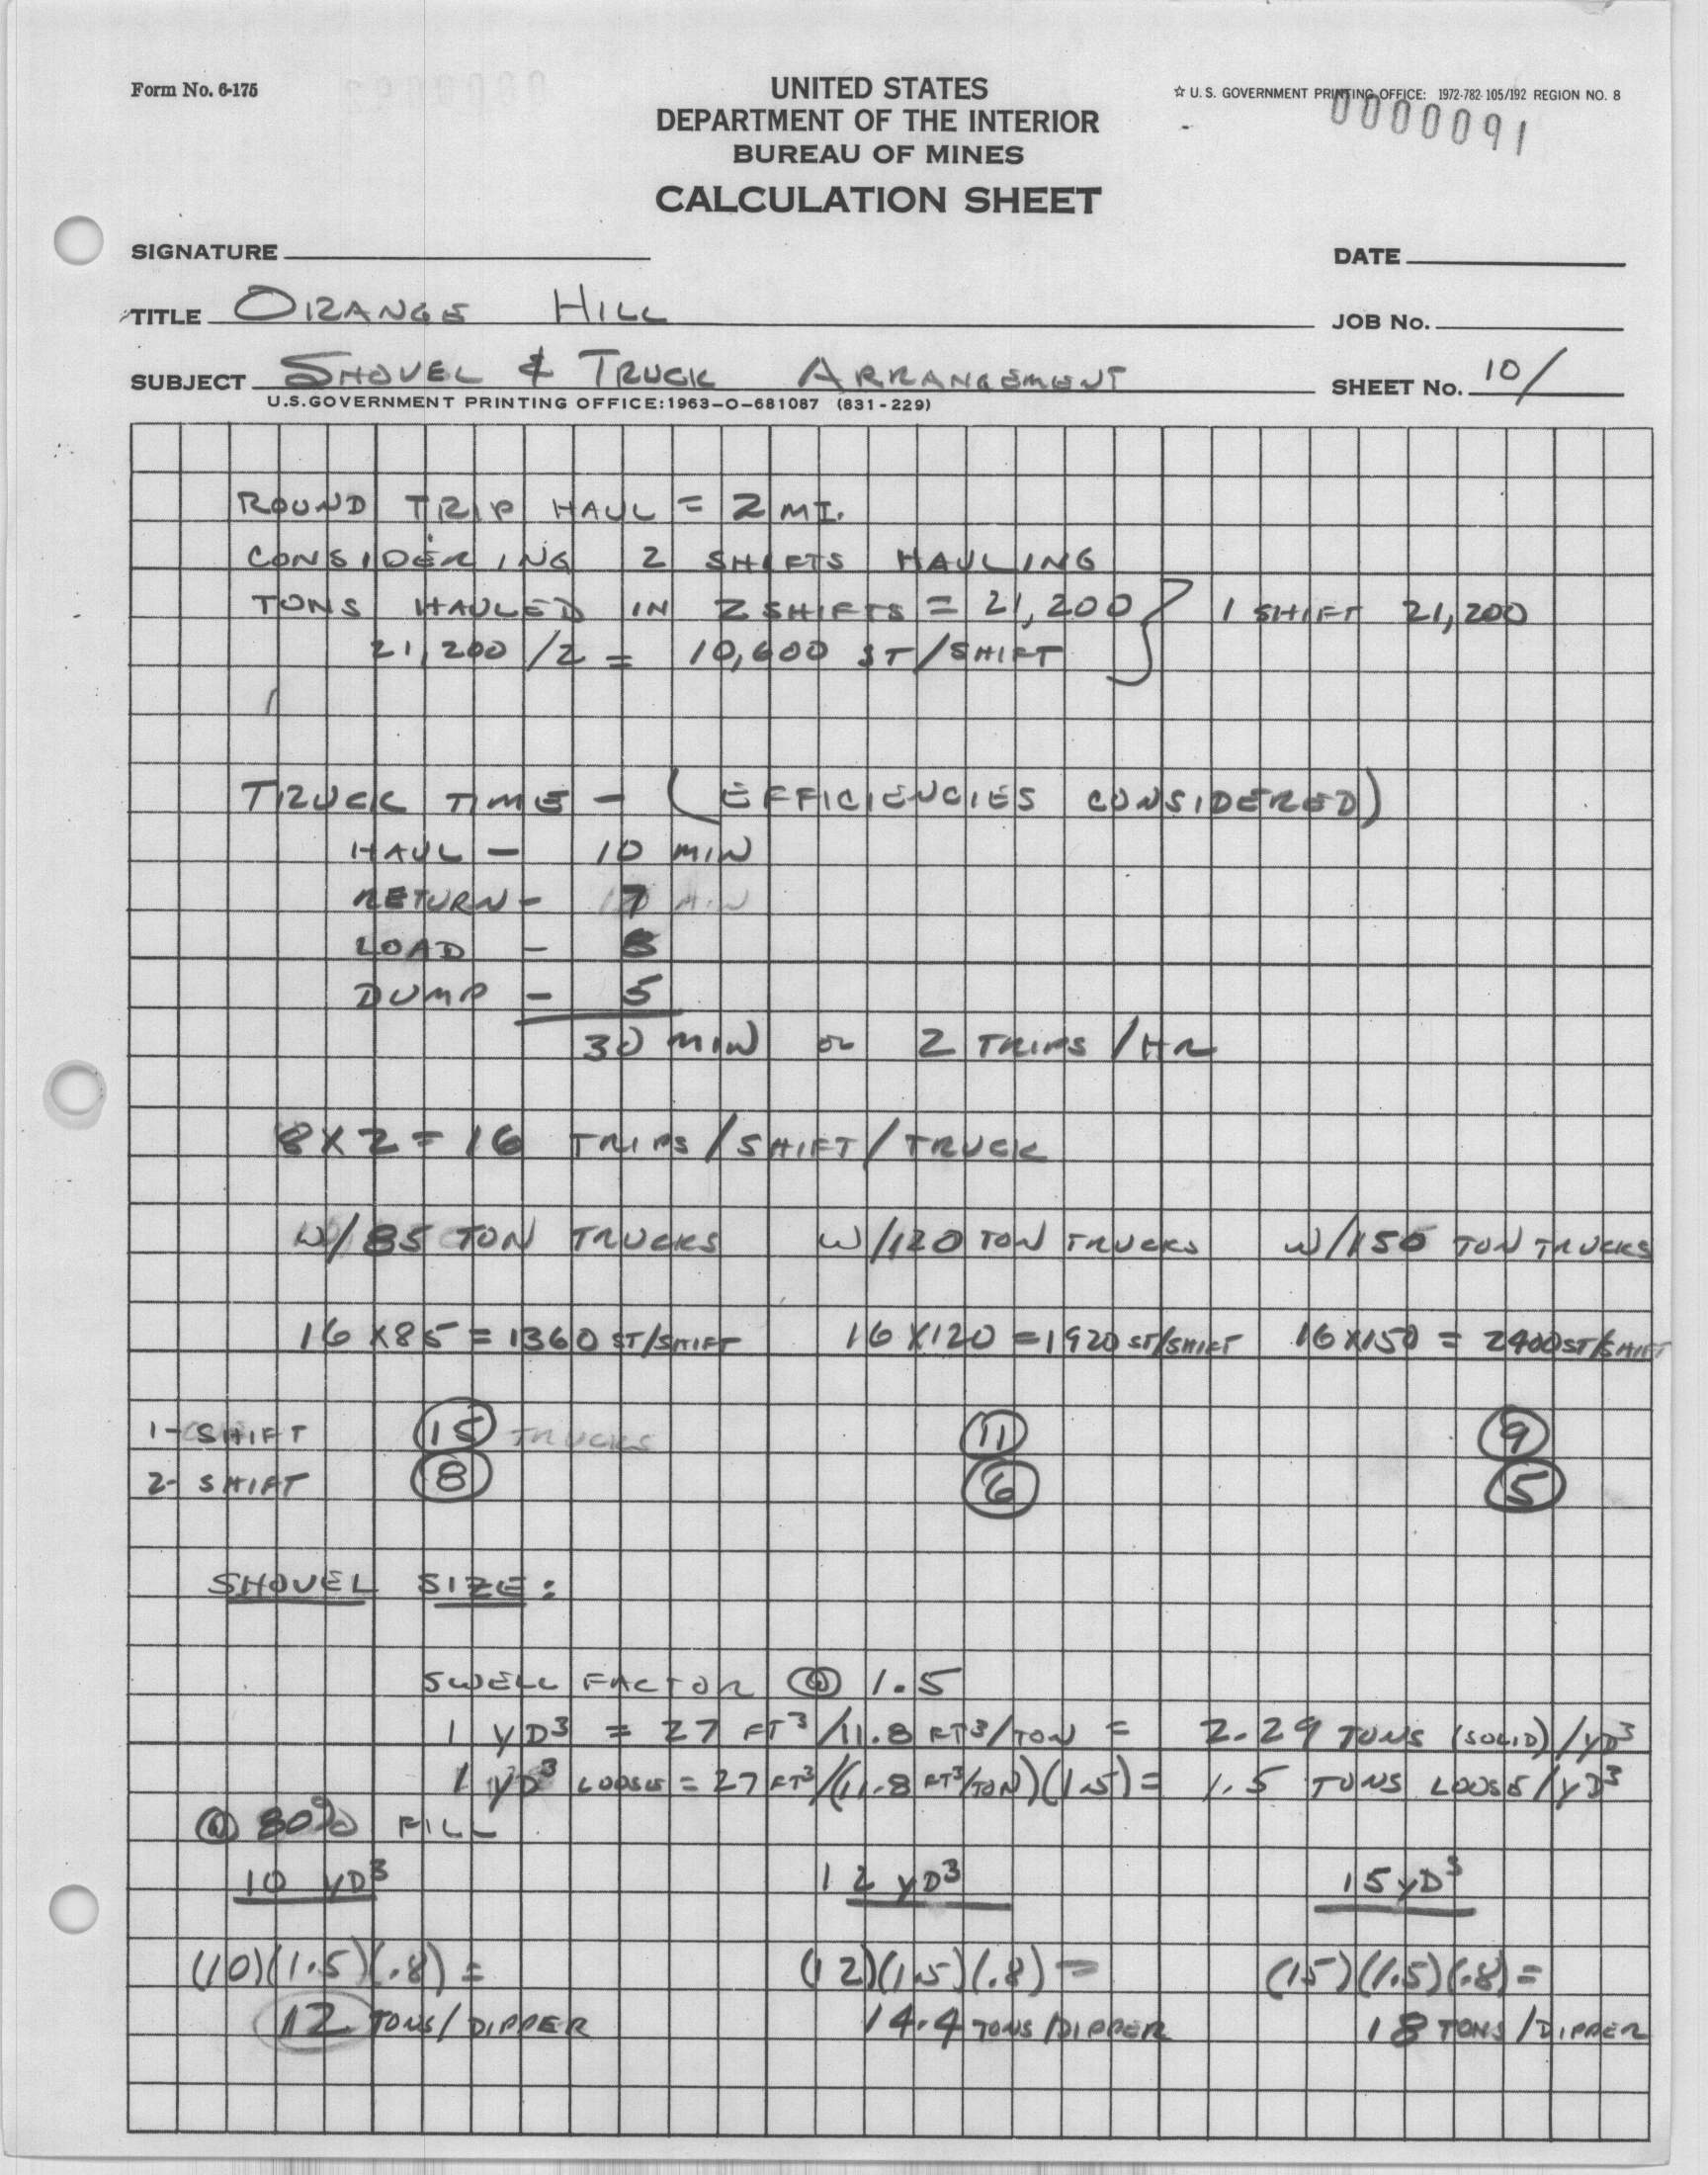 Form No. 6-175
UNITED STATES
DEPARTMENT OF THE INTERIOR
BUREAU OF MINES
CALCULATION SHEET
☆ U. S. GOVERNMENT PRINTING OFFICE: 1972-782-105/192 REGION NO. 8
0000091
SIGNATURE
DATE
TITLE ORANGE HILL
JOB No.
SUBJECT SHOVEL & TRUCK ARRANGEMENT
SHEET No. 10/
U.S.GOVERNMENT PRINTING OFFICE:1963-O-681087 (831-229)
ROUND TRIP HAUL = 2 MI.
CONSIDERING 2 SHIFTS HAULING
TONS HAULED IN 2 SHIFTS = 21,200 } 1 SHIFT 21,200
21,200/2 = 10,600 ST/SHIFT
TRUCK TIME - (EFFICIENCIES CONSIDERED)
HAUL - 10 MIN
RETURN - 7 MIN
LOAD - 8
DUMP - 5
30 MIN OR 2 TRIPS/HR
8 X 2 = 16 TRIPS/SHIFT/TRUCK
W/85 TON TRUCKS W/120 TON TRUCKS W/150 TON TRUCKS
16 X 85 = 1360 ST/SHIFT 16 X 120 = 1920 ST/SHIFT 16 X 150 = 2400 ST/SHIFT
1- SHIFT 15 TRUCKS 11 9
2- SHIFT 8 6 5
SHOVEL SIZE:
SWELL FACTOR @ 1.5
1 YD³ = 27 FT³/11.8 FT³/TON = 2.29 TONS (SOLID)/YD³
1 YD³ LOOSE = 27 FT³/(11.8 FT³/TON)(1.5) = 1.5 TONS LOOSE/YD³
@ 80% FILL
10 YD³ 12 YD³ 15 YD³
(10)(1.5)(.8) = (12)(1.5)(.8) = (15)(1.5)(.8) =
12 TONS/DIPPER 14.4 TONS/DIPPER 18 TONS/DIPPER